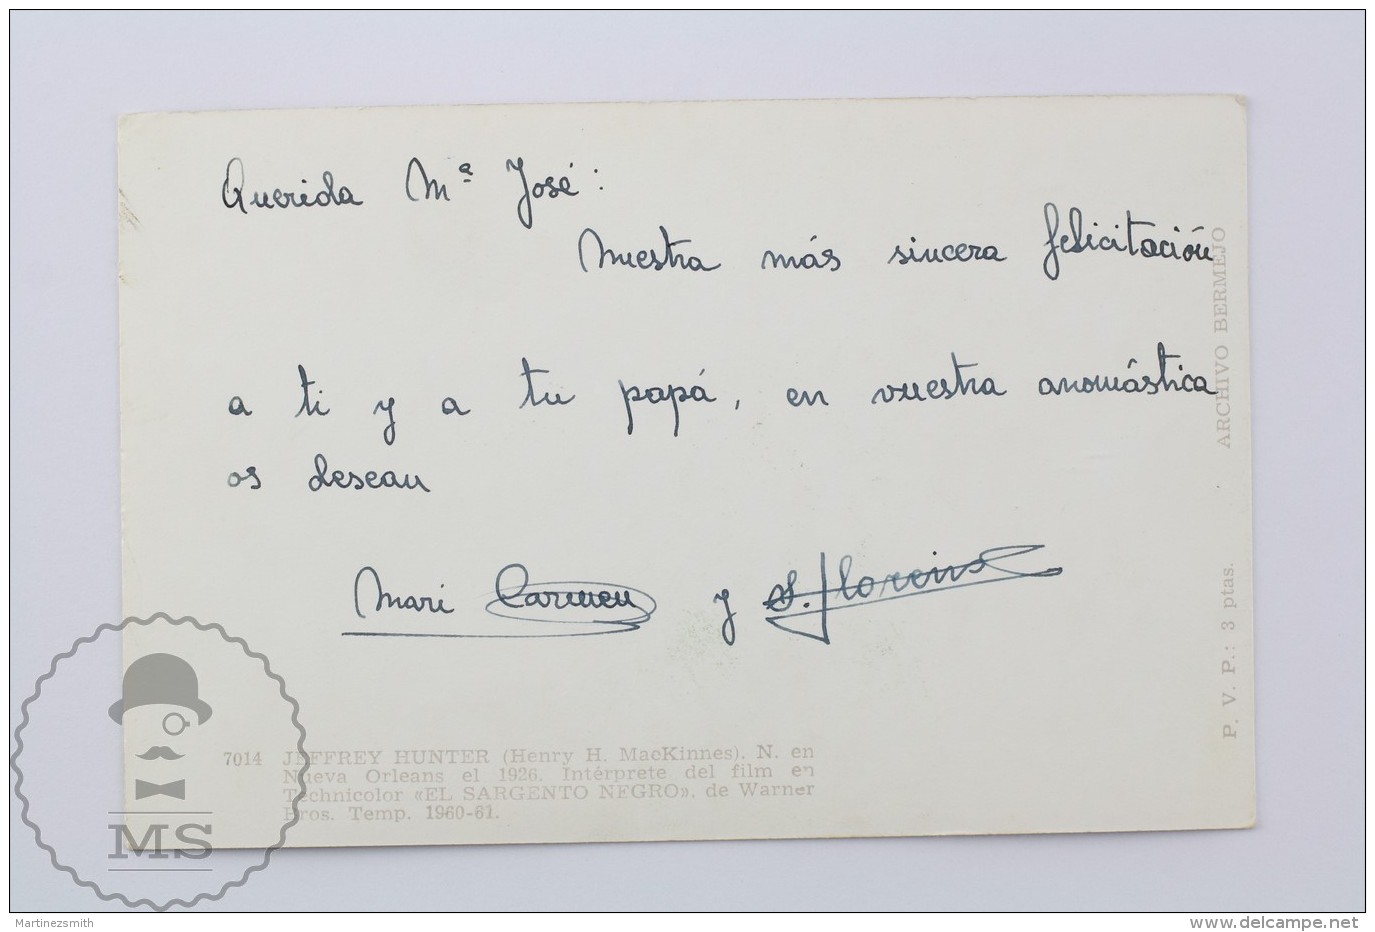 Querida Mª José:
Nuestra más sincera felicitación
a ti y a tu papá, en vuestra anomástica
os desean
Mari Carmen y S. Floreins
7014 JEFFREY HUNTER (Henry H. MacKinnes). N. en
Nueva Orleans el 1926. Intérprete del film en
Technicolor «EL SARGENTO NEGRO». de Warner
Bros. Temp. 1960-61.
P. V. P.: 3 ptas. ARCHIVO BERMEJO
MS
Martinezsmith
www.delcampe.net